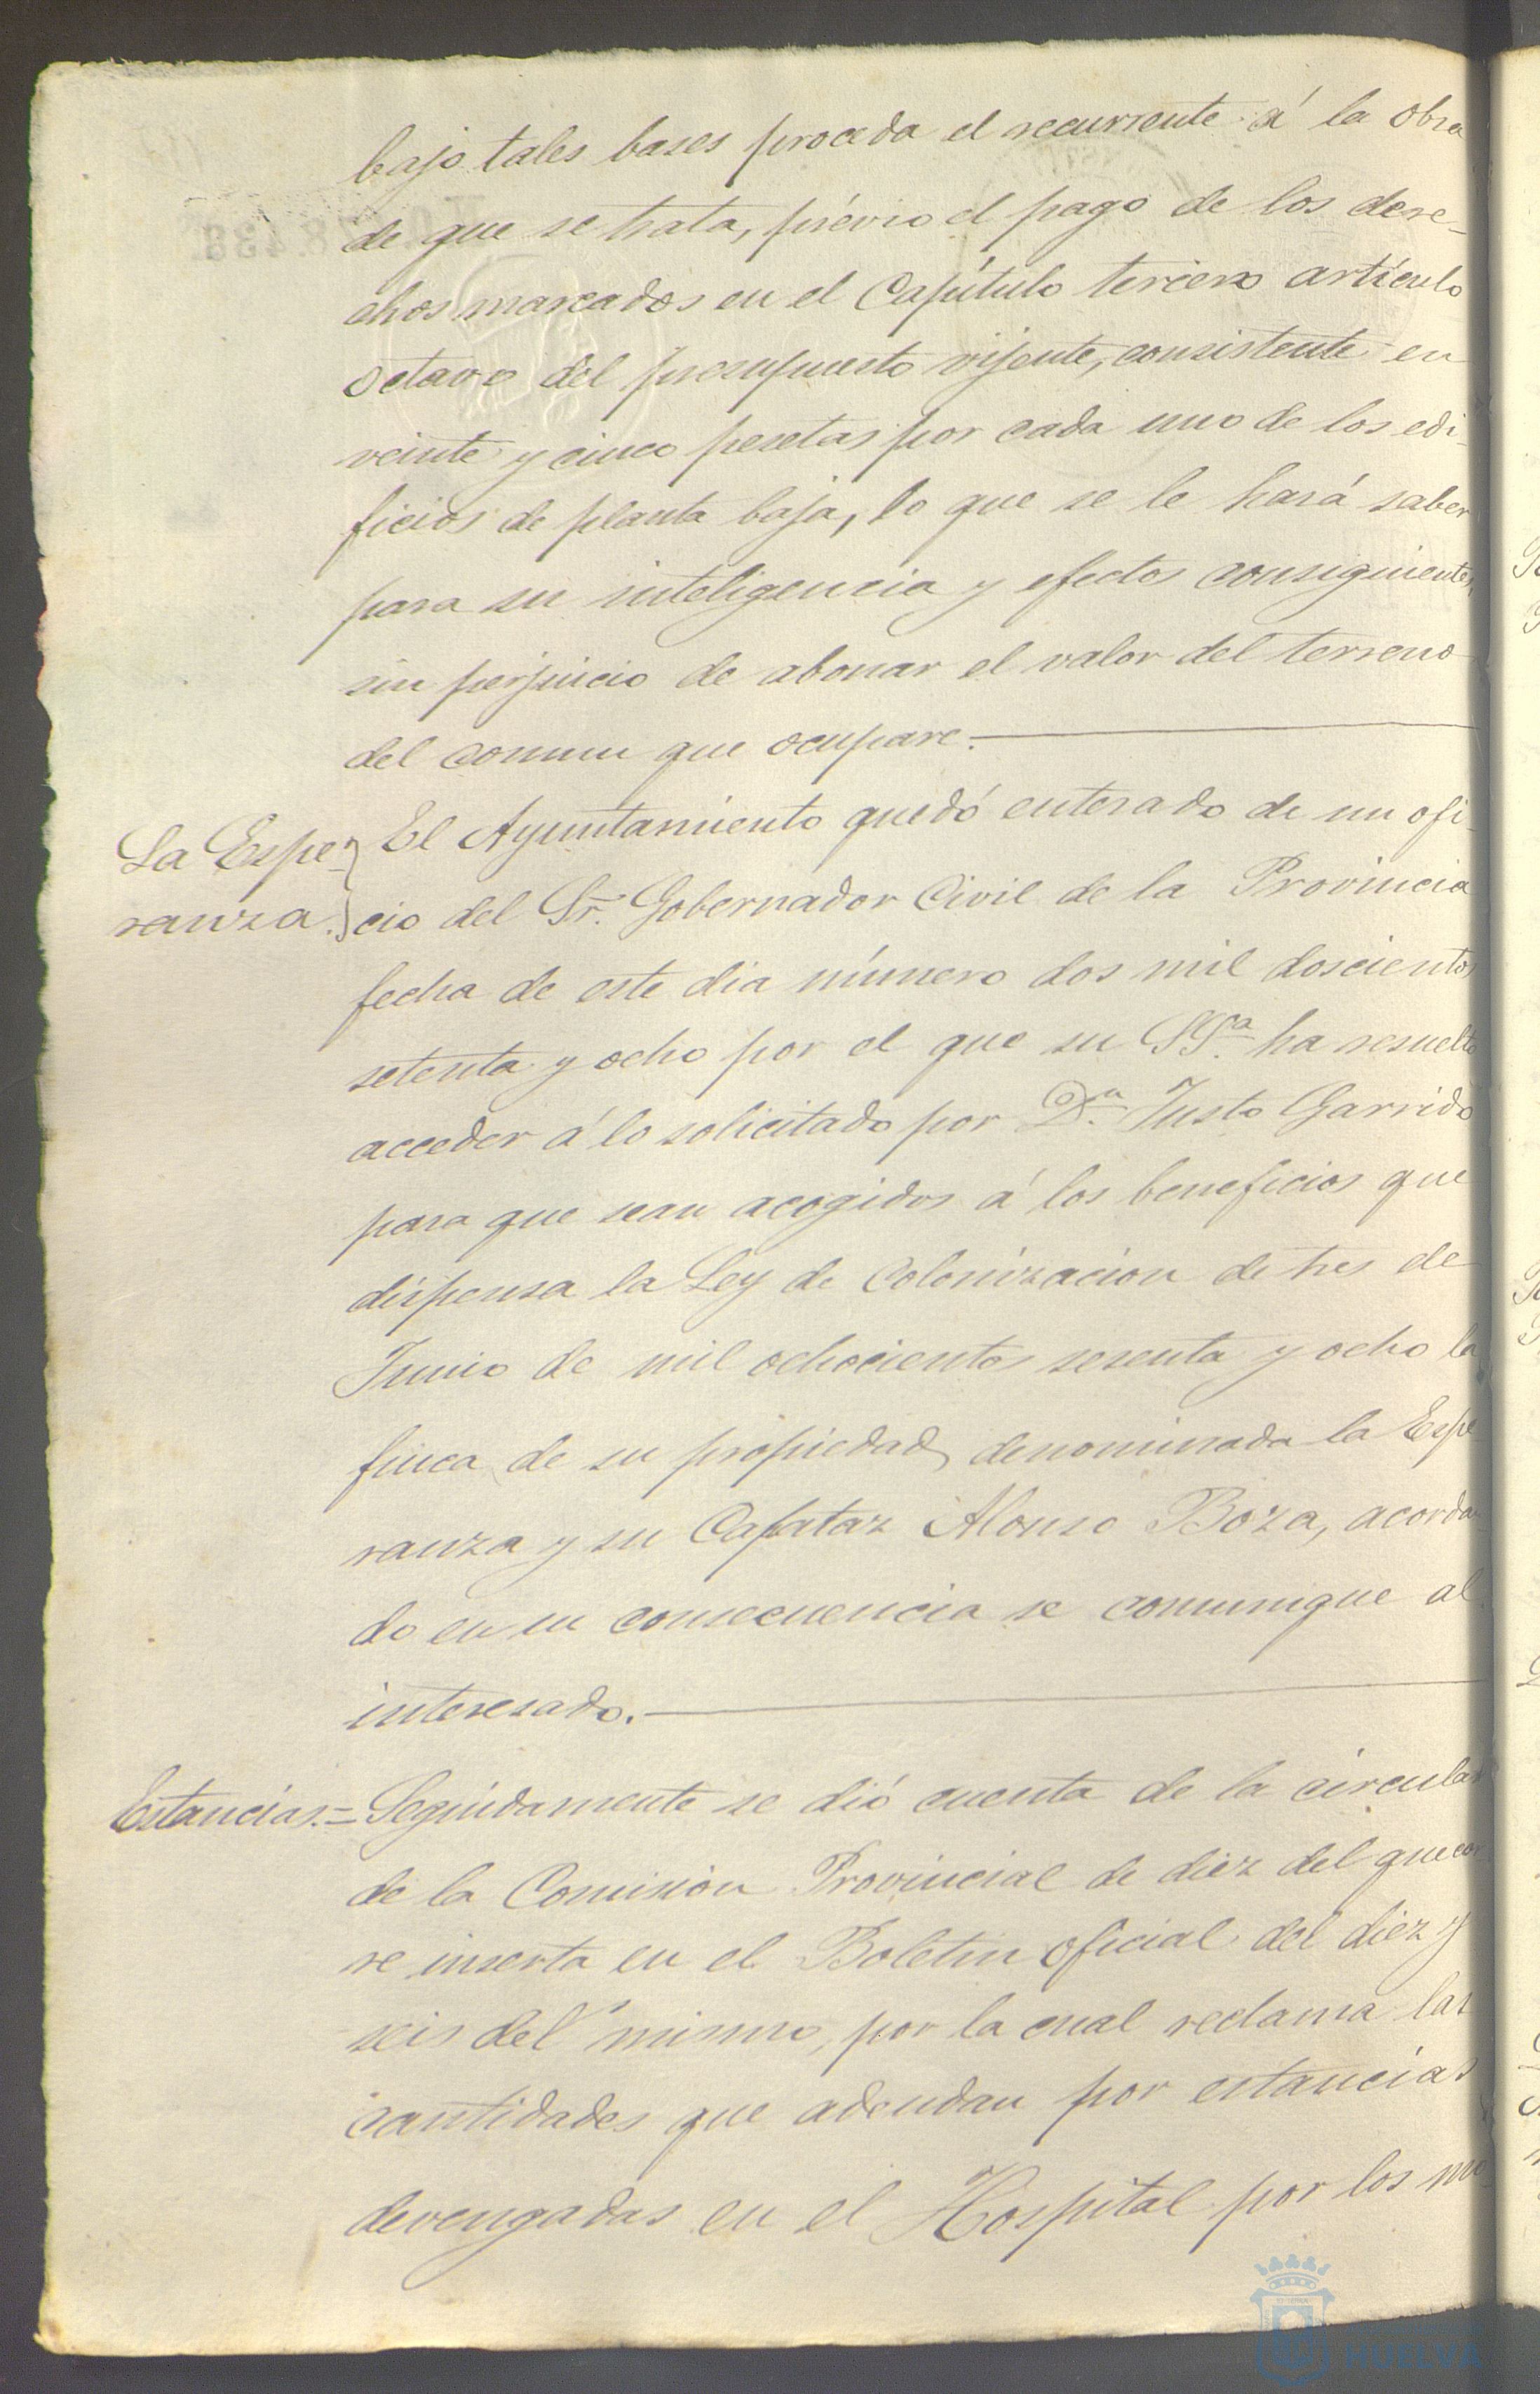 bajo tales bases proceda el recurrente á la obra
de que se trata, prévio el pago de los dere-
chos marcados en el Capítulo tercero artículo
octavo del presupuesto vijente, consistente en
veinte y cinco pesetas por cada uno de los edi-
ficios de planta baja, lo que se le hará saber
para su inteligencia y efectos consiguientes,
sin perjuicio de abonar el valor del terreno
del comun que ocupare.
La Espe-
ranza.
El Ayuntamiento quedó enterado de un ofi-
cio del Sr. Gobernador Civil de la Provincia
fecha de este dia número dos mil doscientos
setenta y ocho por el que su SSª. ha resuelto
acceder á lo solicitado por Dn. Justo Garrido
para que sean acogidos á los beneficios que
dispensa la Ley de Colonizacion de tres de
Junio de mil ochocientos sesenta y ocho la
finca de su propiedad denominada la Espe
ranza y su Capataz Alonso Boza, acordan
do en su consecuencia se comunique al
interesado.
Estancias.= Seguidamente se dió cuenta de la circular
de la Comision Provincial de diez del que cor
re inserta en el Boletin oficial del diez y
seis del mismo, por la cual reclama las
cantidades que adeudan por estancias
devengadas en el Hospital por los
HUELVA